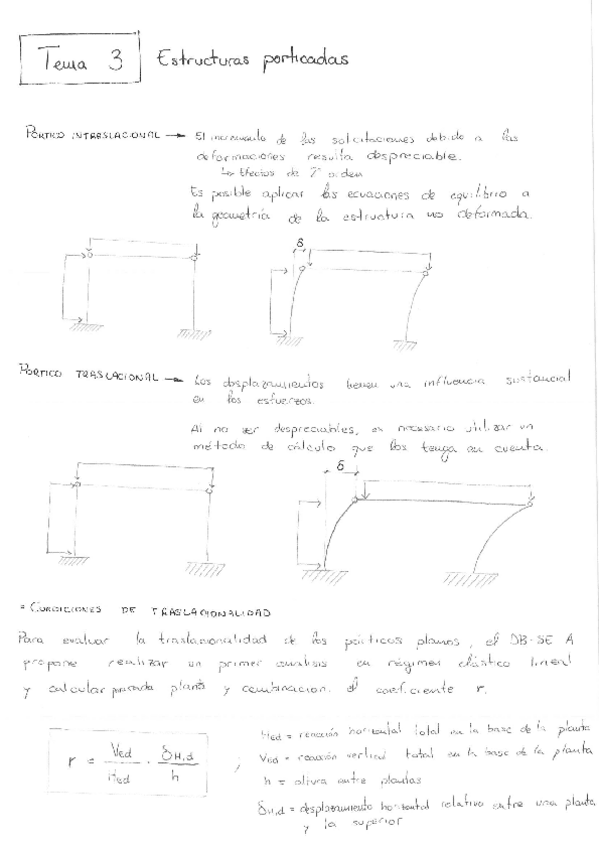 Tema 3 Estructuras porticadas
PÓRTICO INTRASLACIONAL → El incremento de las solicitaciones debido a las
deformaciones resulta despreciable.
↳ Efectos de 2º orden
Es posible aplicar las ecuaciones de equilibrio a
la geometría de la estructura no deformada.
δ
PÓRTICO TRASLACIONAL → Los desplazamientos tienen una influencia sustancial
en los esfuerzos.
Al no ser despreciables, es necesario utilizar un
método de cálculo que los tenga en cuenta.
δ
• CONDICIONES DE TRASLACIONALIDAD
Para evaluar la traslacionalidad de los pórticos planos, el DB-SE A
propone realizar un primer análisis en régimen elástico lineal
y calcular para cada planta y combinación, el coeficiente r.
r = VEd / HEd · δH,d / h ;
HEd = reacción horizontal total en la base de la planta
VEd = reacción vertical total en la base de la planta
h = altura entre plantas
δH,d = desplazamiento horizontal relativo entre una planta
y la superior